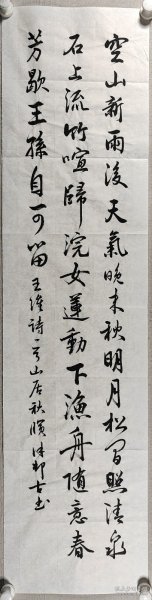 空山新雨後天氣晚来秋明月松間照清泉
石上流竹喧歸浣女蓮動下漁舟随意春
芳歇王孫自可留王維詩一首山居秋暝